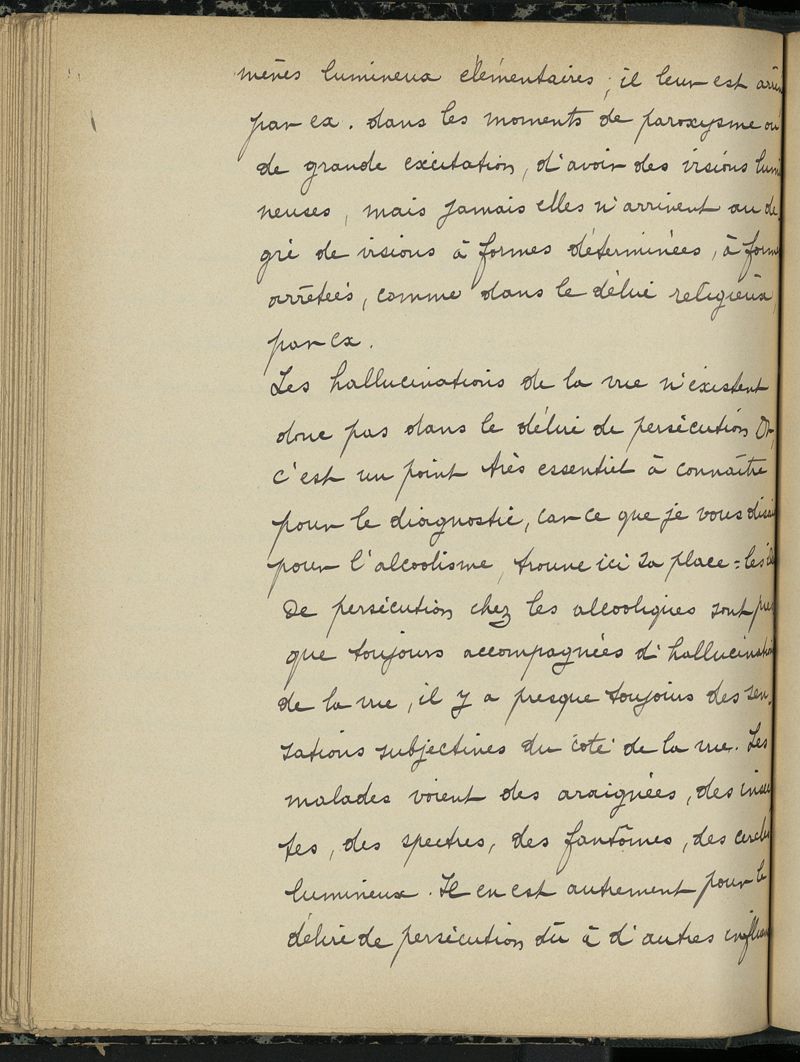 mènes lumineux élémentaires, il leur est arri
par ex. dans les moments de paroxysme ou
de grande excitation, d'avoir des visions lumi
neuses, mais jamais elles n'arrivent au de-
gré de visions à formes déterminées, à forme
arrêtées, comme dans le délire religieux,
par ex.
Les hallucinations de la vue n'existent
donc pas dans le délire de persécution Or,
c'est un point très essentiel à connaître
pour le diagnostic, car ce que je vous disai
pour l'alcoolisme, trouve ici sa place = les id
de persécution chez les alcooliques sont pres
que toujours accompagnées d'hallucination
de la vue, il y a presque toujours des sen-
sations subjectives du côté de la vue. Les
malades voient des araignées, des insec
tes, des spectres, des fantômes, des cercle
lumineux. Il en est autrement pour le
délire de persécution dû à d'autres influen